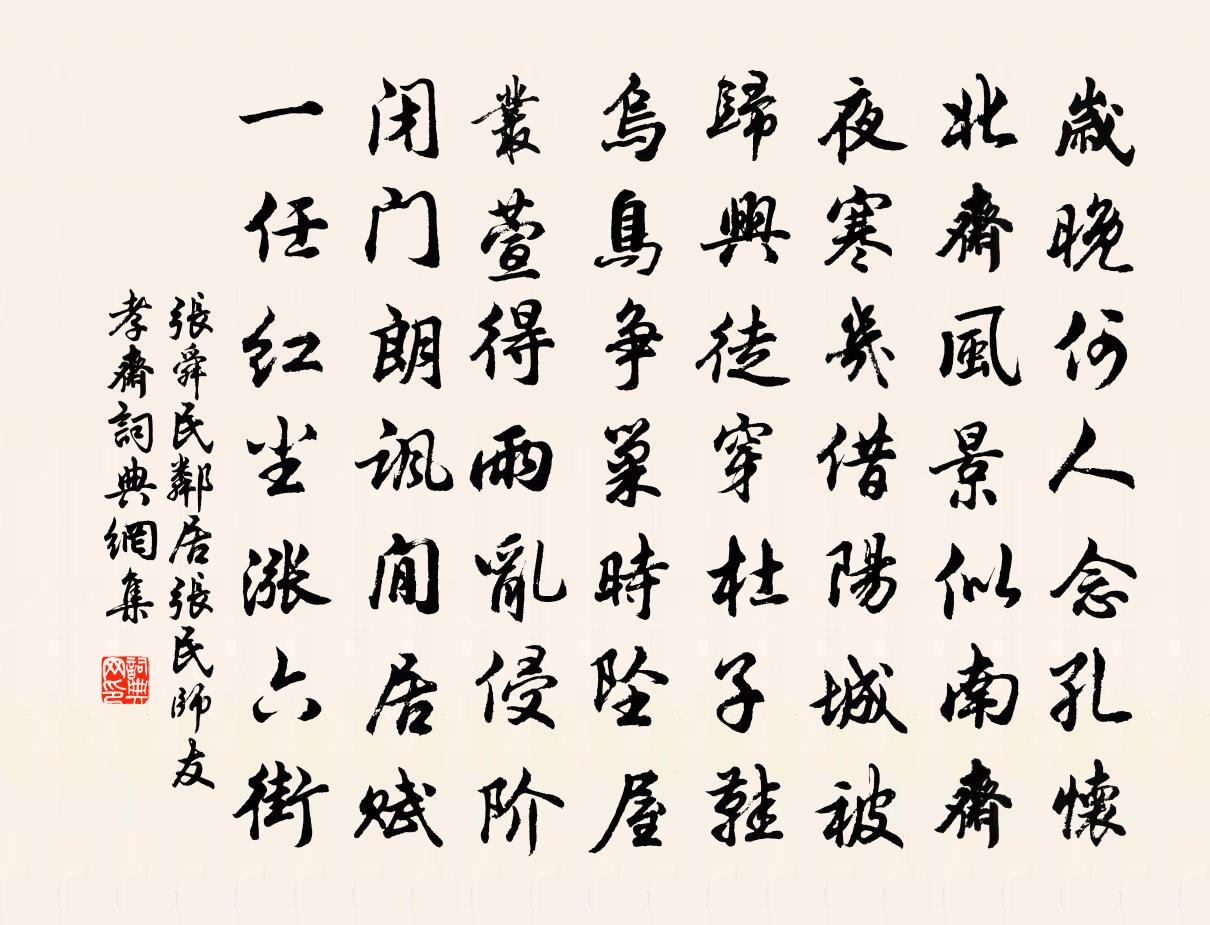 歲晚何人念孔懷
北齋風景似南齋
夜寒幾借陽城被
歸興徒穿杜子鞋
烏鳥爭巢時墜屋
叢萱得雨亂侵阶
闭门朗讽閒居赋
一任红尘漲六街
張舜民鄰居張民師友
孝齋詞典網集
詞典
网印